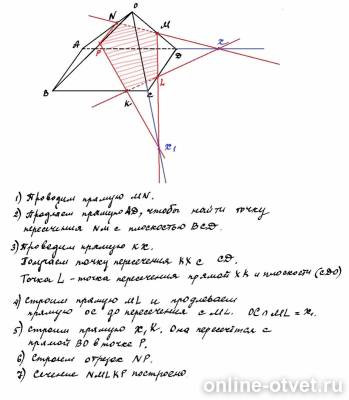 O
N
M
A
P
D
x
L
B
K
C
x₁
1) Проводим прямую MN.
2) Продлеваем прямую AD, чтобы найти точку
пересечения NM с плоскостью BCD.
3) Проведем прямую KX.
Получаем точку пересечения KX с CD.
Точка L - точка пересечения прямой XK и плоскости (CDO)
4) Строим прямую ML и продлеваем
прямую OC до пересечения с ML. OC∩ML = x₁.
5) Строим прямую x₁K. Она пересечётся с
прямой BO в точке P.
6) Строим отрезок NP.
7) Сечение NMLKP построено
online-otvet.ru